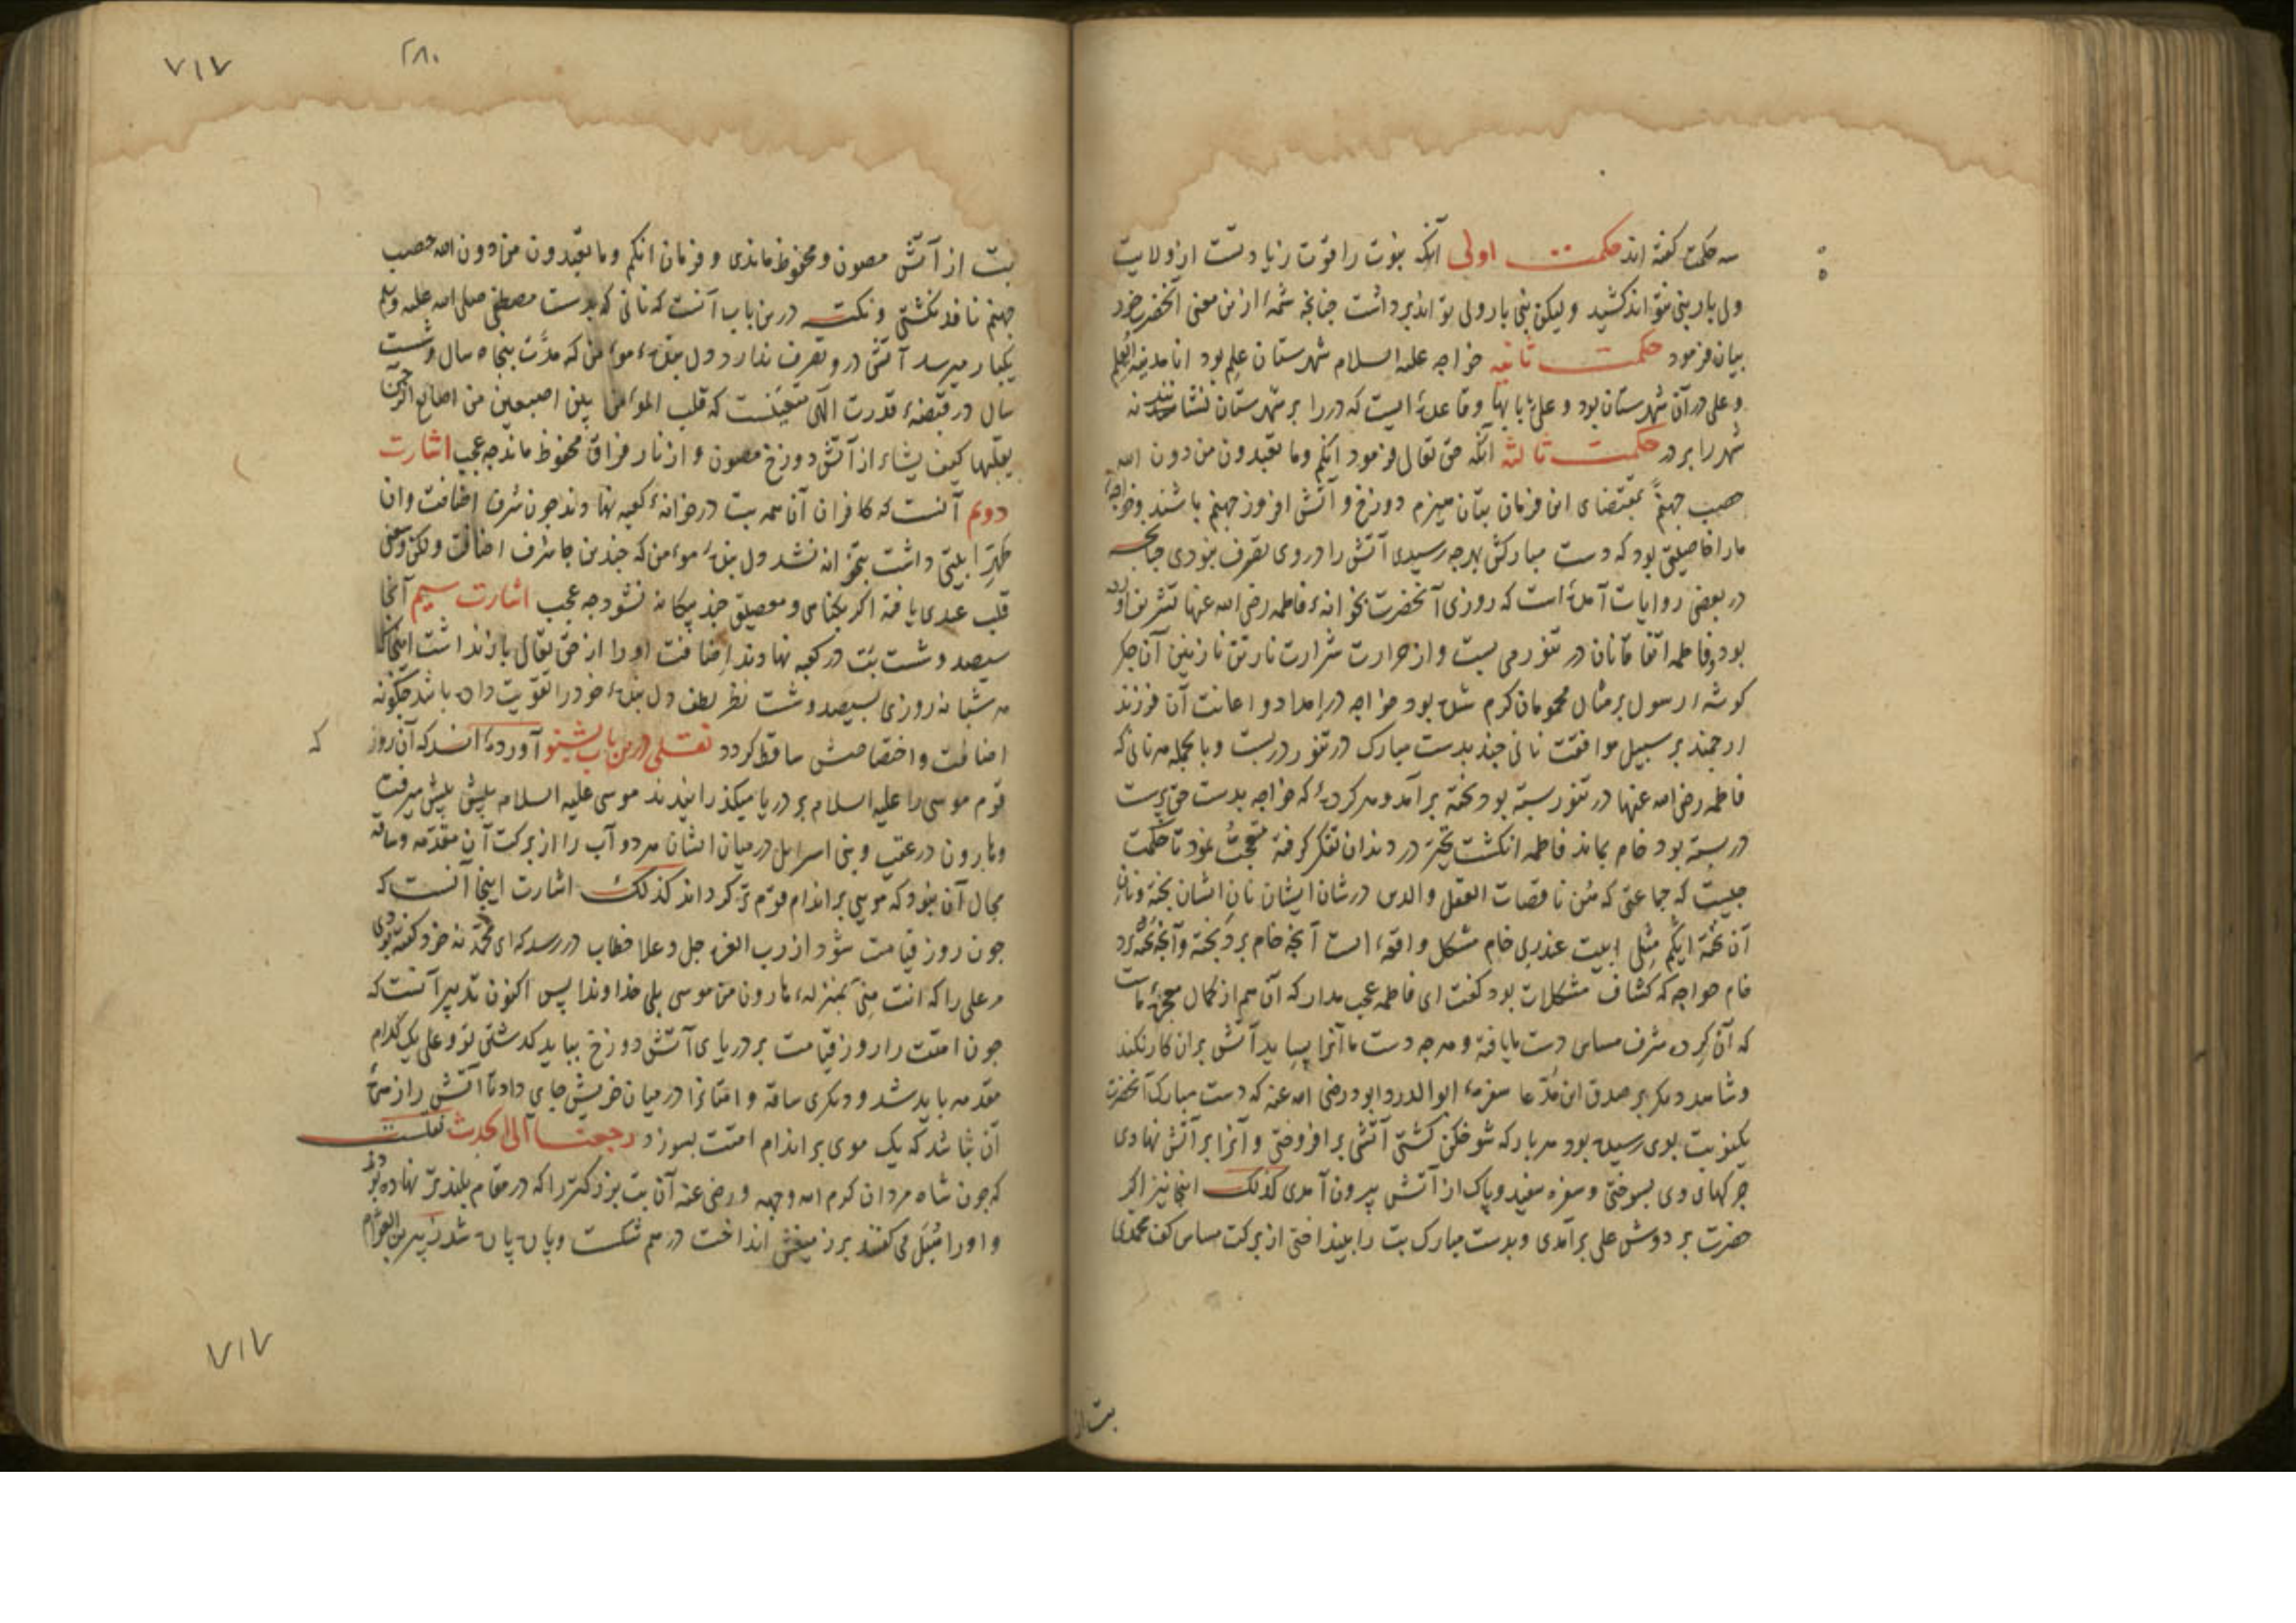 سه حکمت گفته اند حکمت اولی آنکه نبوت را قوت زیادتست از ولایت
ولی بار نبی نتواند کشید ولیکن نبی بار ولی تواند برداشت چنانچه شمهٔ ازین معنی آنحضرت خود
بیان فرمود حکمت ثانیه خواجه علیه السلام شهرستان علم بود انا مدینة العلم
و علی در آن شهرستان بود و علی بابها و قاعدهٔ ایست که در را بر شهرستان نشانند نه
شهر را بر در حکمت ثالثه آنکه حق تعالی فرمود انکم وما تعبدون من دون الله
حصب جهنم بمقتضای این فرمان بتان هیزم دوزخ و آتش افروز جهنم باشند و خواجهٔ
ما را خاصیتی بود که دست مبارکش بهرچه رسیدی آتش را در وی تصرف نبودی چنانچه
در بعضی روایات آمدهٔ است که روزی آنحضرت بخوانهٔ فاطمه رضی الله عنها تشریف آورده
بود و فاطمه اتفاقا نان در تنور می بست و از حرارت شرارت نار تن نازنین آن جگر
گوشهٔ رسول بر مثال محمومان گرم شده بود خواجه در امداد و اعانت آن فرزند
ارجمند بر سبیل موافقت نانی چند بدست مبارک در تنور در بست و بالجمله هر نانی که
فاطمه رضی الله عنها در تنور بسته بود پخته برآمد و هر کردهٔ که خواجه بدست حق پرست
در بسته بود خام بماند فاطمه انگشت تحیر در دندان تفکر گرفته تعجب نمود تا حکمت
چیست که جماعتی که هن ناقصات العقل والدین در شان ایشان نان ایشان پخته و نان
آن پختهٔ ایکم مثلی ابیت عند ربی خام مشکل واقعهٔ است آنچه خام برد پخته و آنچه پخته برد
خام خواجه که کشاف مشکلات بود گفت ای فاطمه عجب مدار که آن هم از کمال معجزهٔ ماست
که آن گرده شرف مساس دست ما یافته و هرچه دست ما آنرا بساید آتش بران کار نکند
و شاهد دیگر بر صدق این مدعا سفرهٔ ابو الدردا بود رضی الله عنه که دست مبارک آنحضرت
یکنوبت بوی رسیده بود هر بار که شوخگن گشتی آتش بر افروختی و آنرا بر آتش نهادی
چرکهای وی بسوختی و سفره سفید و پاک از آتش بیرون آمدی کذلک اینجا نیز اگر
حضرت بر دوش علی برآمدی و بدست مبارک بت را بینداختی از برکت مساس کف محمدی
بت از
۷۱۷
۲۸۰
بت از آتش مصون و محفوظ ماندی و فرمان انکم وما تعبدون من دون الله حصب
جهنم نافذ نگشتی و نکته درین باب آنست که نانی که بدست مصطفی صلی الله علیه وسلم
یکبار میرسد آتش در و تصرف ندارد دل بندهٔ مؤمن که مدت پنجاه سال و شست
سال در قبضهٔ قدرت الهی متعینست که قلب المؤمن بین اصبعین من اصابع الرحمن
یقلبها کیف یشاء از آتش دوزخ مصون و از نار فراق محفوظ ماند چه عجب اشارت
دوم آنست که کافران آن همه بت در خوانهٔ کعبه نهادند چون شرف اضافت وان
طهرا بیتی داشت بتخوانه نشد دل بندهٔ مؤمن که چندین جا شرف اضافت ولکن وسعنی
قلب عبدی یافته اگر بگناهی و معصیتی چند بیگانه نشود چه عجب اشارت سیم آنجا
سیصد و شست بت در کعبه نهادند اضافت او را از حق تعالی باز نداشت اینجا که
هر شبانه روزی بسیصد و شست نظر لطف دل بندهٔ خود را تقویت داده باشد چگونه
اضافت و اختصاصش ساقط گردد نقلی درین باب بشنو آورده اند که آن روز که
قوم موسی را علیه السلام بر دریا میگذرانیدند موسی علیه السلام پیش پیش میرفت
و هارون در عقب و بنی اسرایل در میان ایشان هر دو آب را از برکت آن مقدمه و ساقه
مجال آن نبود که مویی بر اندام قوم تر گرداند کذلک اشارت اینجا آنست که
چون روز قیامت شود از رب العزه جل و علا خطاب در رسد که ای محمد نه خود گفته بودی
مر علی را که انت منی بمنزلهٔ هارون من موسی بلی خداوندا پس اکنون تدبیر آنست که
چون امتت را روز قیامت بر دریای آتش دوزخ بباید گذشتن تو و علی یک کدام
مقدمه باید شد و دیگری ساقه و امتانرا در میان خویش جای داد تا آتش را زهرهٔ
آن نباشد که یک موی بر اندام امتت بسوزد رجعنا الی الحدیث نقلست
که چون شاه مردان کرم الله وجهه و رضی عنه آن بت بزرگتر را که در مقام بلندتر نهاده بودند
و او را هبل می گفتند بر زمینش انداخت در هم شکست و پاره پاره شد زبیر بن العوام
۷۱۷